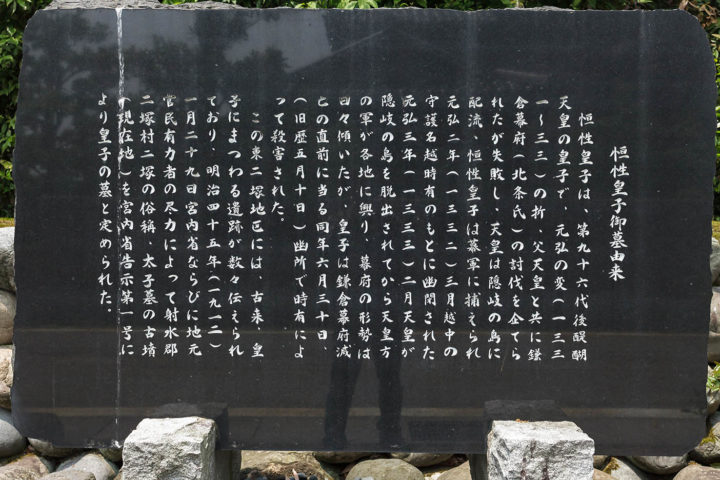 恒性皇子御墓由来
恒性皇子は、第九十六代後醍醐
天皇の皇子で、元弘の変(一三三
一〜三三)の折、父天皇と共に鎌
倉幕府(北条氏)の討伐を企てら
れたが失敗し、天皇は隠岐の島に
配流、恒性皇子は幕軍に捕えられ
元弘二年(一三三二)三月越中の
守護名越時有のもとに幽閉された
元弘三年(一三三三)二月天皇が
隠岐の島を脱出されてから天皇方
の軍が各地に興り、幕府の形勢は
日々傾いたが、皇子は鎌倉幕府滅
亡の直前に当る同年六月三十日、
(旧歴五月十日)幽所で時有によ
って殺害された。
この東二塚地区には、古来、皇
子にまつわる遺跡が数々伝えられ
ており、明治四十五年(一九一二)
一月二十九日宮内省ならびに地元
官民有力者の尽力によって射水郡
二塚村二塚の俗称、太子墓の古墳
(現在地)を宮内省告示第一号に
より皇子の墓と定められた。